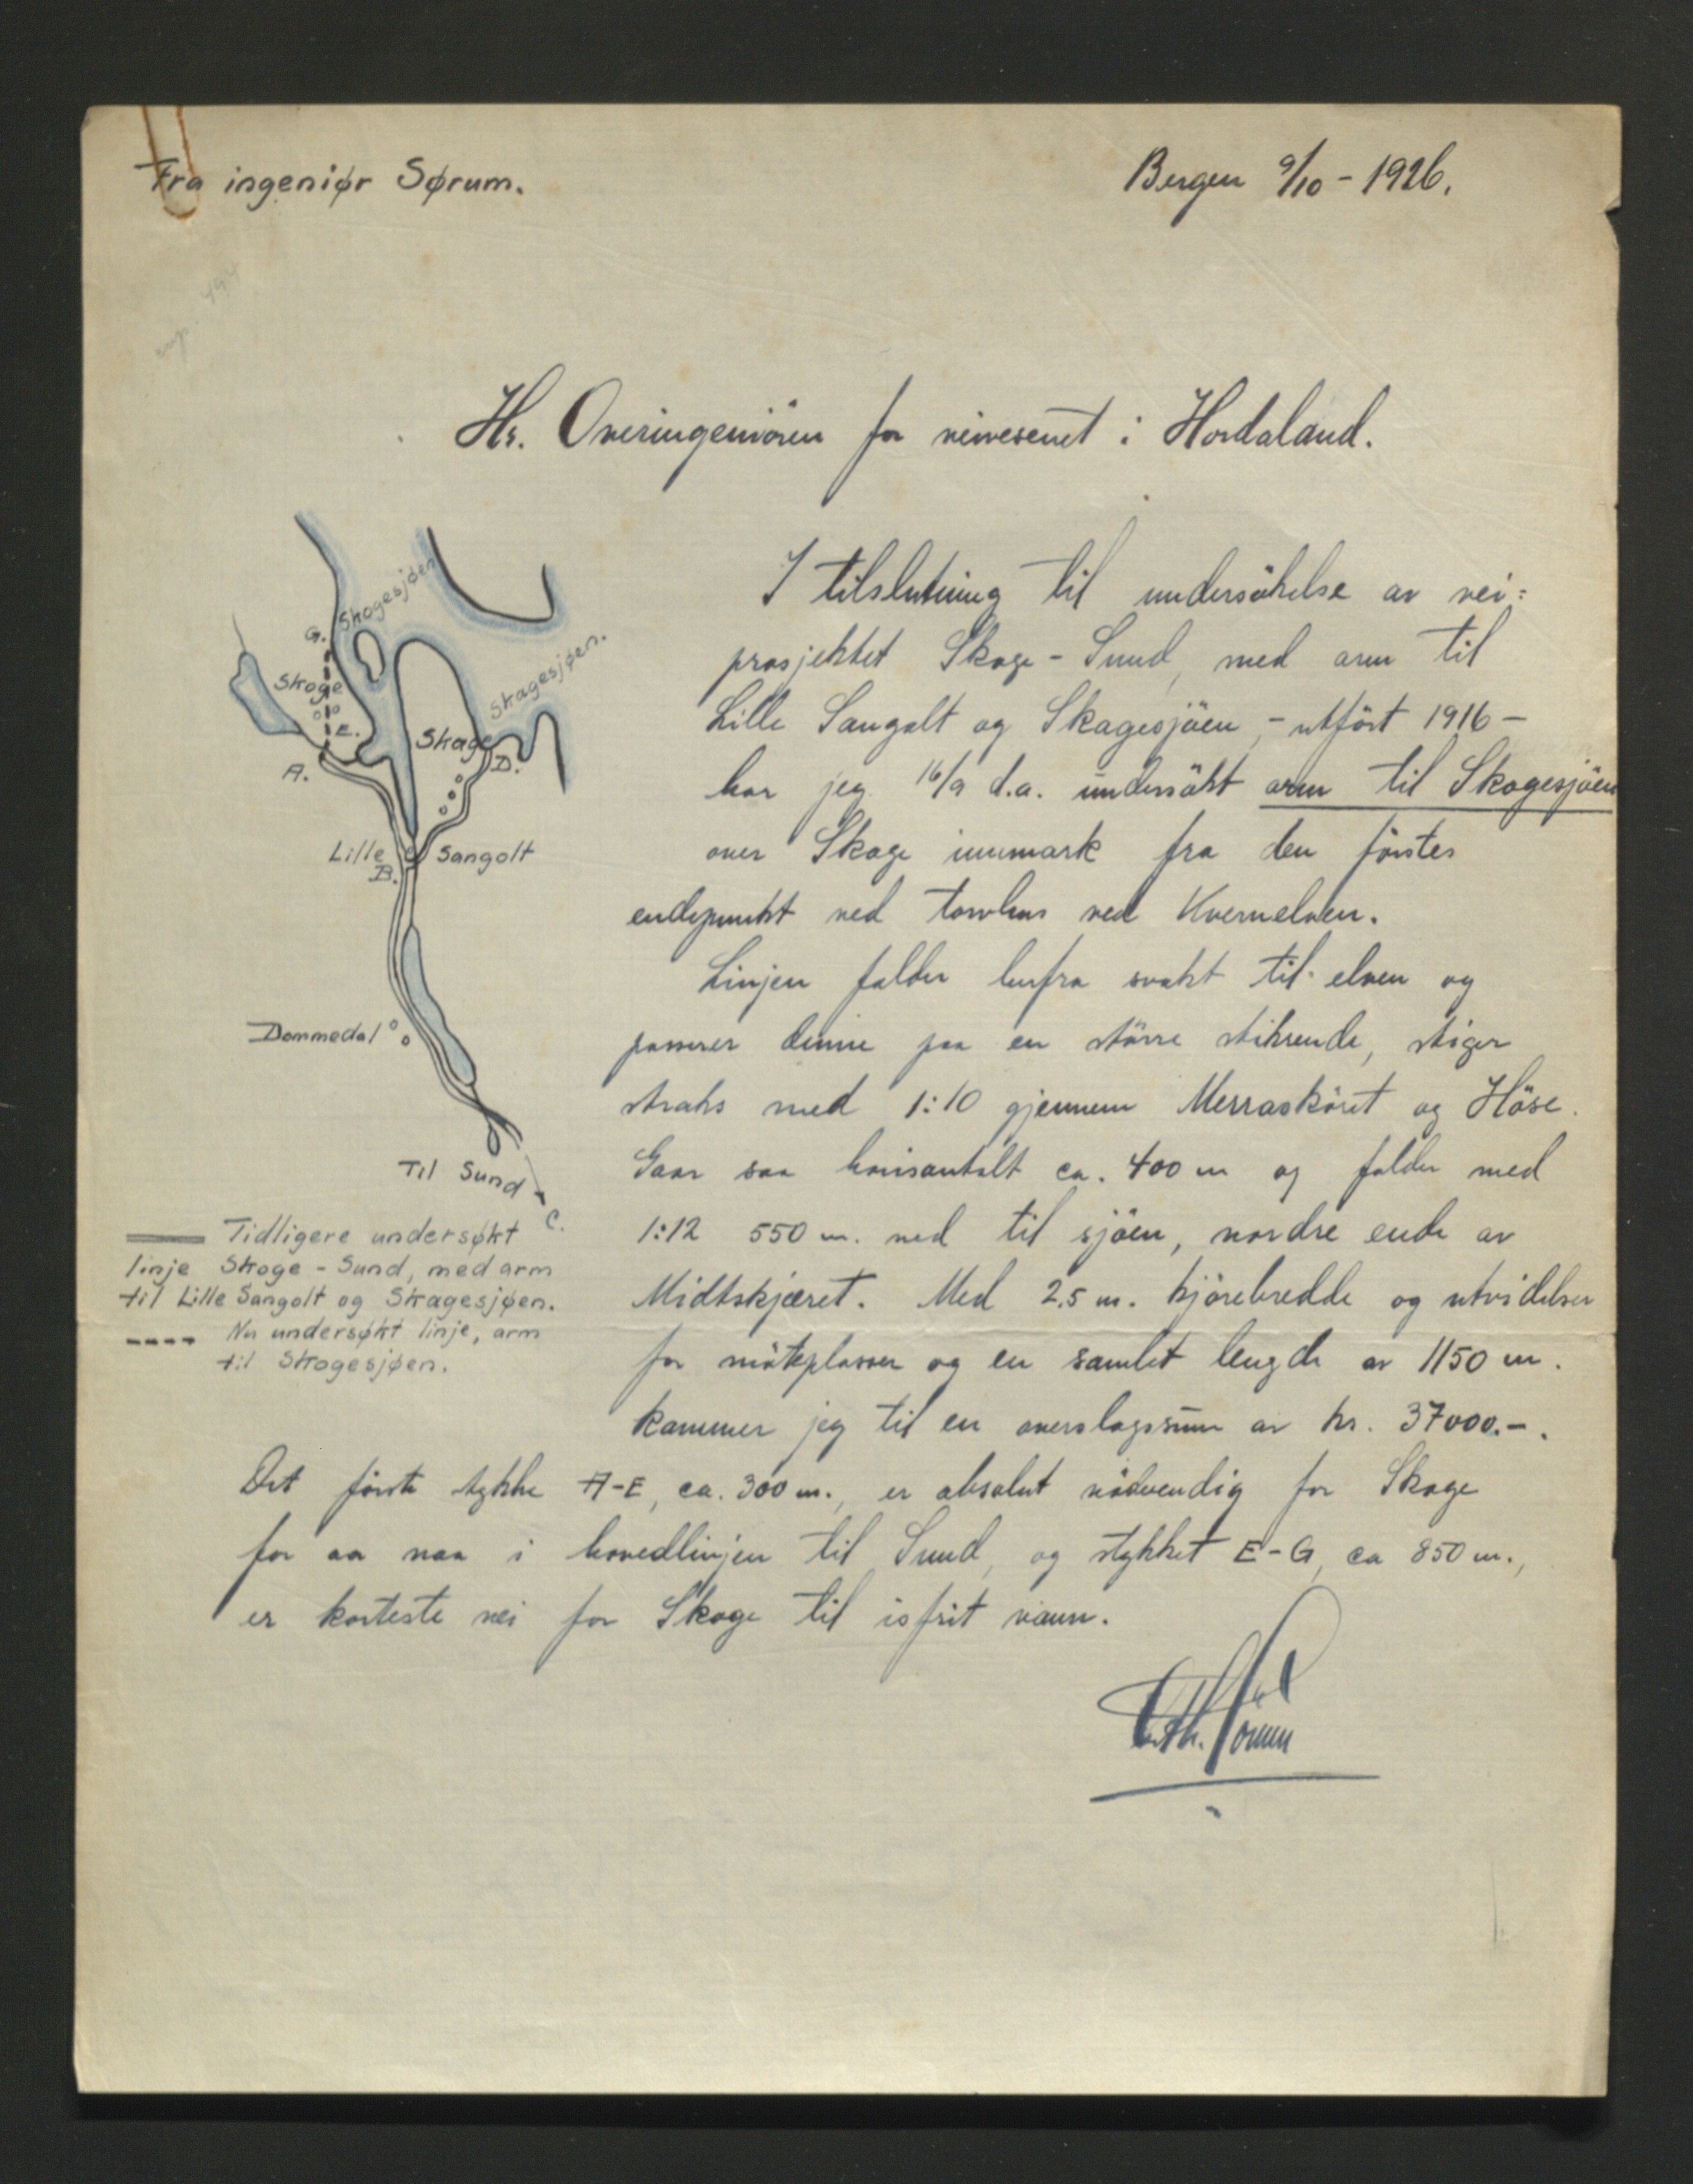 Fra ingeniør Sørum.
Bergen 9/10 - 1926.
Hr. Overingeniören for veivesenet i Hordaland.
I tilslutning til undersökelse av vei=
prosjektet Skoge - Sund, med arm til
Lille Sangolt og Skagesjöen, - utfört 1916 -
har jeg 16/9 d.a. undersökt arm til Skogesjöen
over Skoge innmark fra den förstes
endepunkt ved torvhus ved Kvernelven.
Linjen falder herfra svakt til elven og
passerer denne paa en större stikrende, stiger
straks med 1:10 gjennem Merrasköret og Höse.
Gaar saa horisontalt ca. 400 m og falder med
1:12 550 m. ned til sjöen, nordre ende av
Midtskjæret. Med 2,5 m. kjörebredde og utvidelser
for möteplasser og en samlet lengde av 1150 m.
kommer jeg til en overslagssum av kr. 37000.-.
Det förste stykke A-E, ca. 300 m., er absolut nödvendig for Skoge
for aa naa i hovedlinjen til Sund, og stykket E-G, ca 850 m.,
er korteste vei for Skoge til isfrit vann.
Sörum
Skogesjøen
G.
Skoge
E.
A.
Skagesjøen.
Skage
D.
Lille Sangolt
B.
Dommedal
Til Sund
C.
Tidligere undersøkt
linje Skoge - Sund, med arm
til Lille Sangolt og Skagesjøen.
Nu undersøkt linje, arm
til Skogesjøen.